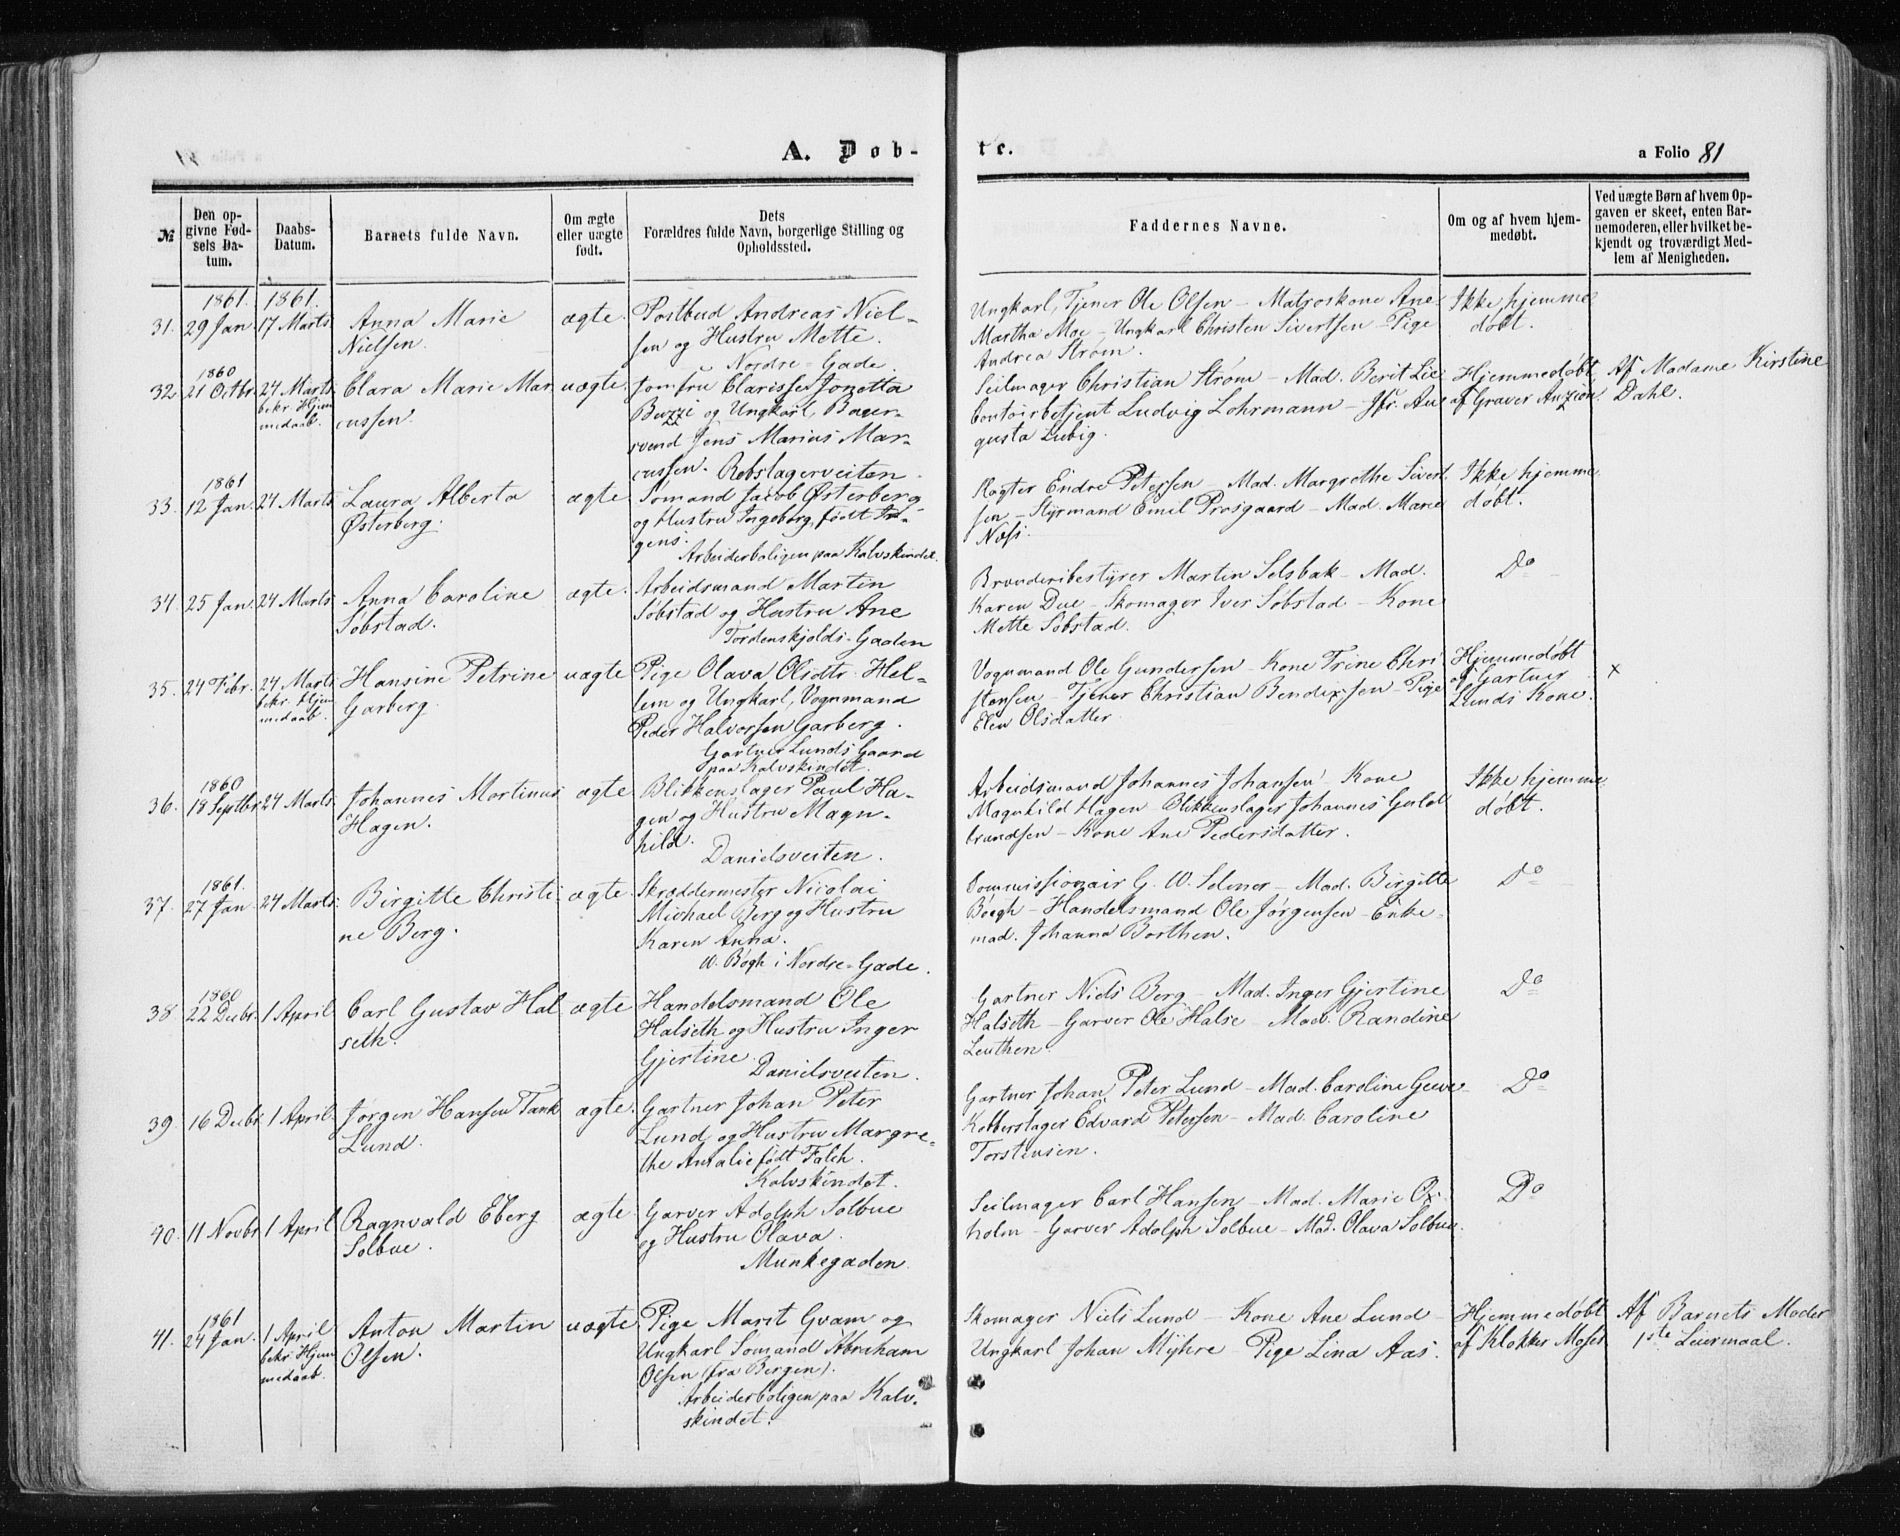 A. Døb-
№
Den op-
givne Fød-
sels Da-
tum.
Daabs-
Datum.
Barnets fulde Navn.
Om ægte
eller uægte
født.
Dets
Forældres fulde Navn, borgerlige Stilling og
Opholdssted.
31.
1861.
29 Jan.
1861.
17 Marts
Anna Marie
Nielsen.
ægte.
Postbud Andreas Niel-
sen og Hustru Mette.
Nordre-Gade.
32.
1860
21 Octbr.
24 Marts
bekr. Hjem
medaab.
Clara Marie Mar
cussen.
uægte.
Jomfru Clarisse Jonetta
Buzzi og Ungkarl, Bager-
svend Jens Marius Mar-
cussen. Rebslagerveiten.
33.
1861
12 Jan.
24 Marts
Laura Alberta
Østerberg.
ægte
Sømand Jacob Østerberg
og Hustru Ingeborg, født In-
gens.
Arbeiderboligen paa Kalvskindet.
34.
25 Jan.
24 Marts
Anna Caroline
Søbstad.
ægte.
Arbeidsmand Martin
Søbstad og Hustru Ane
Tordenskjolds-Gaden
35.
24 Febr.
24 Marts
bekr. Hjem
medaab.
Hansine Petrine
Garberg.
uægte
Pige Olava Olsdtr. Hel-
lem og Ungkarl, Vognmand
Peder Halvorsen Garberg.
Gartner Lunds Gaard
paa Kalvskindet.
36.
1860
18 Septbr.
24 Marts
Johannes Martinus
Hagen.
ægte
Blikkenslager Paul Ha-
gen og Hustru Magn-
hild.
Danielsveiten.
37.
1861.
27 Jan.
24 Marts.
Birgitte Christi
ne Berg.
ægte.
Skræddermester Nicolai
Michael Berg og Hustru
Karen Anna.
W. Bøgh i Nordre-Gade.
38
1860
22 Decbr.
1 April
Carl Gustav Hal
seth.
ægte
Handelsmand Ole
Halseth og Hustru Inger
Gjertine.
Danielsveiten.
39.
16 Decbr.
1 April.
Jørgen Hansen Tank
Lund.
ægte.
Gartner Johan Peter
Lund og Hustru Margre-
the Amalie født Falch.
Kalvskindet.
40.
11 Novbr.
1 April
Ragnvald Eberg
Solbue.
ægte.
Garver Adolph Solbue
og Hustru Olava.
Munkegaden.
41.
1861
24 Jan.
1 April
bekr. Hjem
medaab.
Anton Martin
Olsen.
uægte.
Pige Marit Gvam og
Ungkarl Sømand Abraham
Olsen (fra Bergen).
Arbeiderboligen paa Kalv-
skindet.
te.
a Folio 81
Faddernes Navne.
Om og af hvem hjem-
medøbt.
Ved uægte Børn af hvem Op-
gaven er skeet, enten Bar-
nemoderen, eller hvilket be-
kjendt og troværdigt Med-
lem af Menigheden.
Ungkarl, Tjener Ole Olsen - Matroskone Ane
Martha Moe - Ungkarl Christen Sivertsen - Pige
Andrea Strøm.
Ikke hjemme
døbt.
Seilmager Christian Strøm - Mad. Berit Lie
Contoirbetjent Ludvig Lohrmann - Jfr. Au
gusta Liebig.
Hjemmedøbt
af Graver Anzion.
Af Madame Kirstine
Dahl.
Røgter Endre Petersen - Mad. Margrethe Sivert
sen - Styrmand Emil Prosgaard - Mad. Marie
Næss.
Ikke hjemme
døbt.
Brænderibestyrer Martin Selsbak - Mad.
Karen Due - Skomager Iver Søbstad - Kone
Mette Søbstad.
Do
Vognmand Ole Gundersen - Kone Trine Chri
stensen - Tjener Christian Bendixsen - Pige
Elen Olsdatter.
Hjemmedøbt
af Gartner
Lunds Kone.
×
Arbeidsmand Johannes Johansen - Kone
Magnhild Hagen Blikkenslager Johannes Guld
brandsen - Kone Ane Pedersdatter.
Ikke hjemme
døbt.
Commissionair G. W. Selmer - Mad. Birgitte
Bøgh - Handelsmand Ole Jørgensen - Enke-
mad. Johanna Borthen.
Do
Gartner Niels Berg - Mad. Inger Gjertine
Halseth - Garver Ole Halse - Mad. Randine
Leuthen.
Do
Gartner Johan Peter Lund - Mad. Caroline
Kobberslager Edvard Petersen - Mad. Caroline
Torstensen.
Do
Seilmager Carl Hansen - Mad. Marie Ox-
holm - Garver Adolph Solbue - Mad. Olava Solbue.
Do
Skomager Niels Lund - Kone Ane Lund -
Ungkarl Johan Myhre - Pige Lina Aas.
Hjemmedøbt
af Klokker Moses
Af Barnets Moder
1ste Leiermaal.